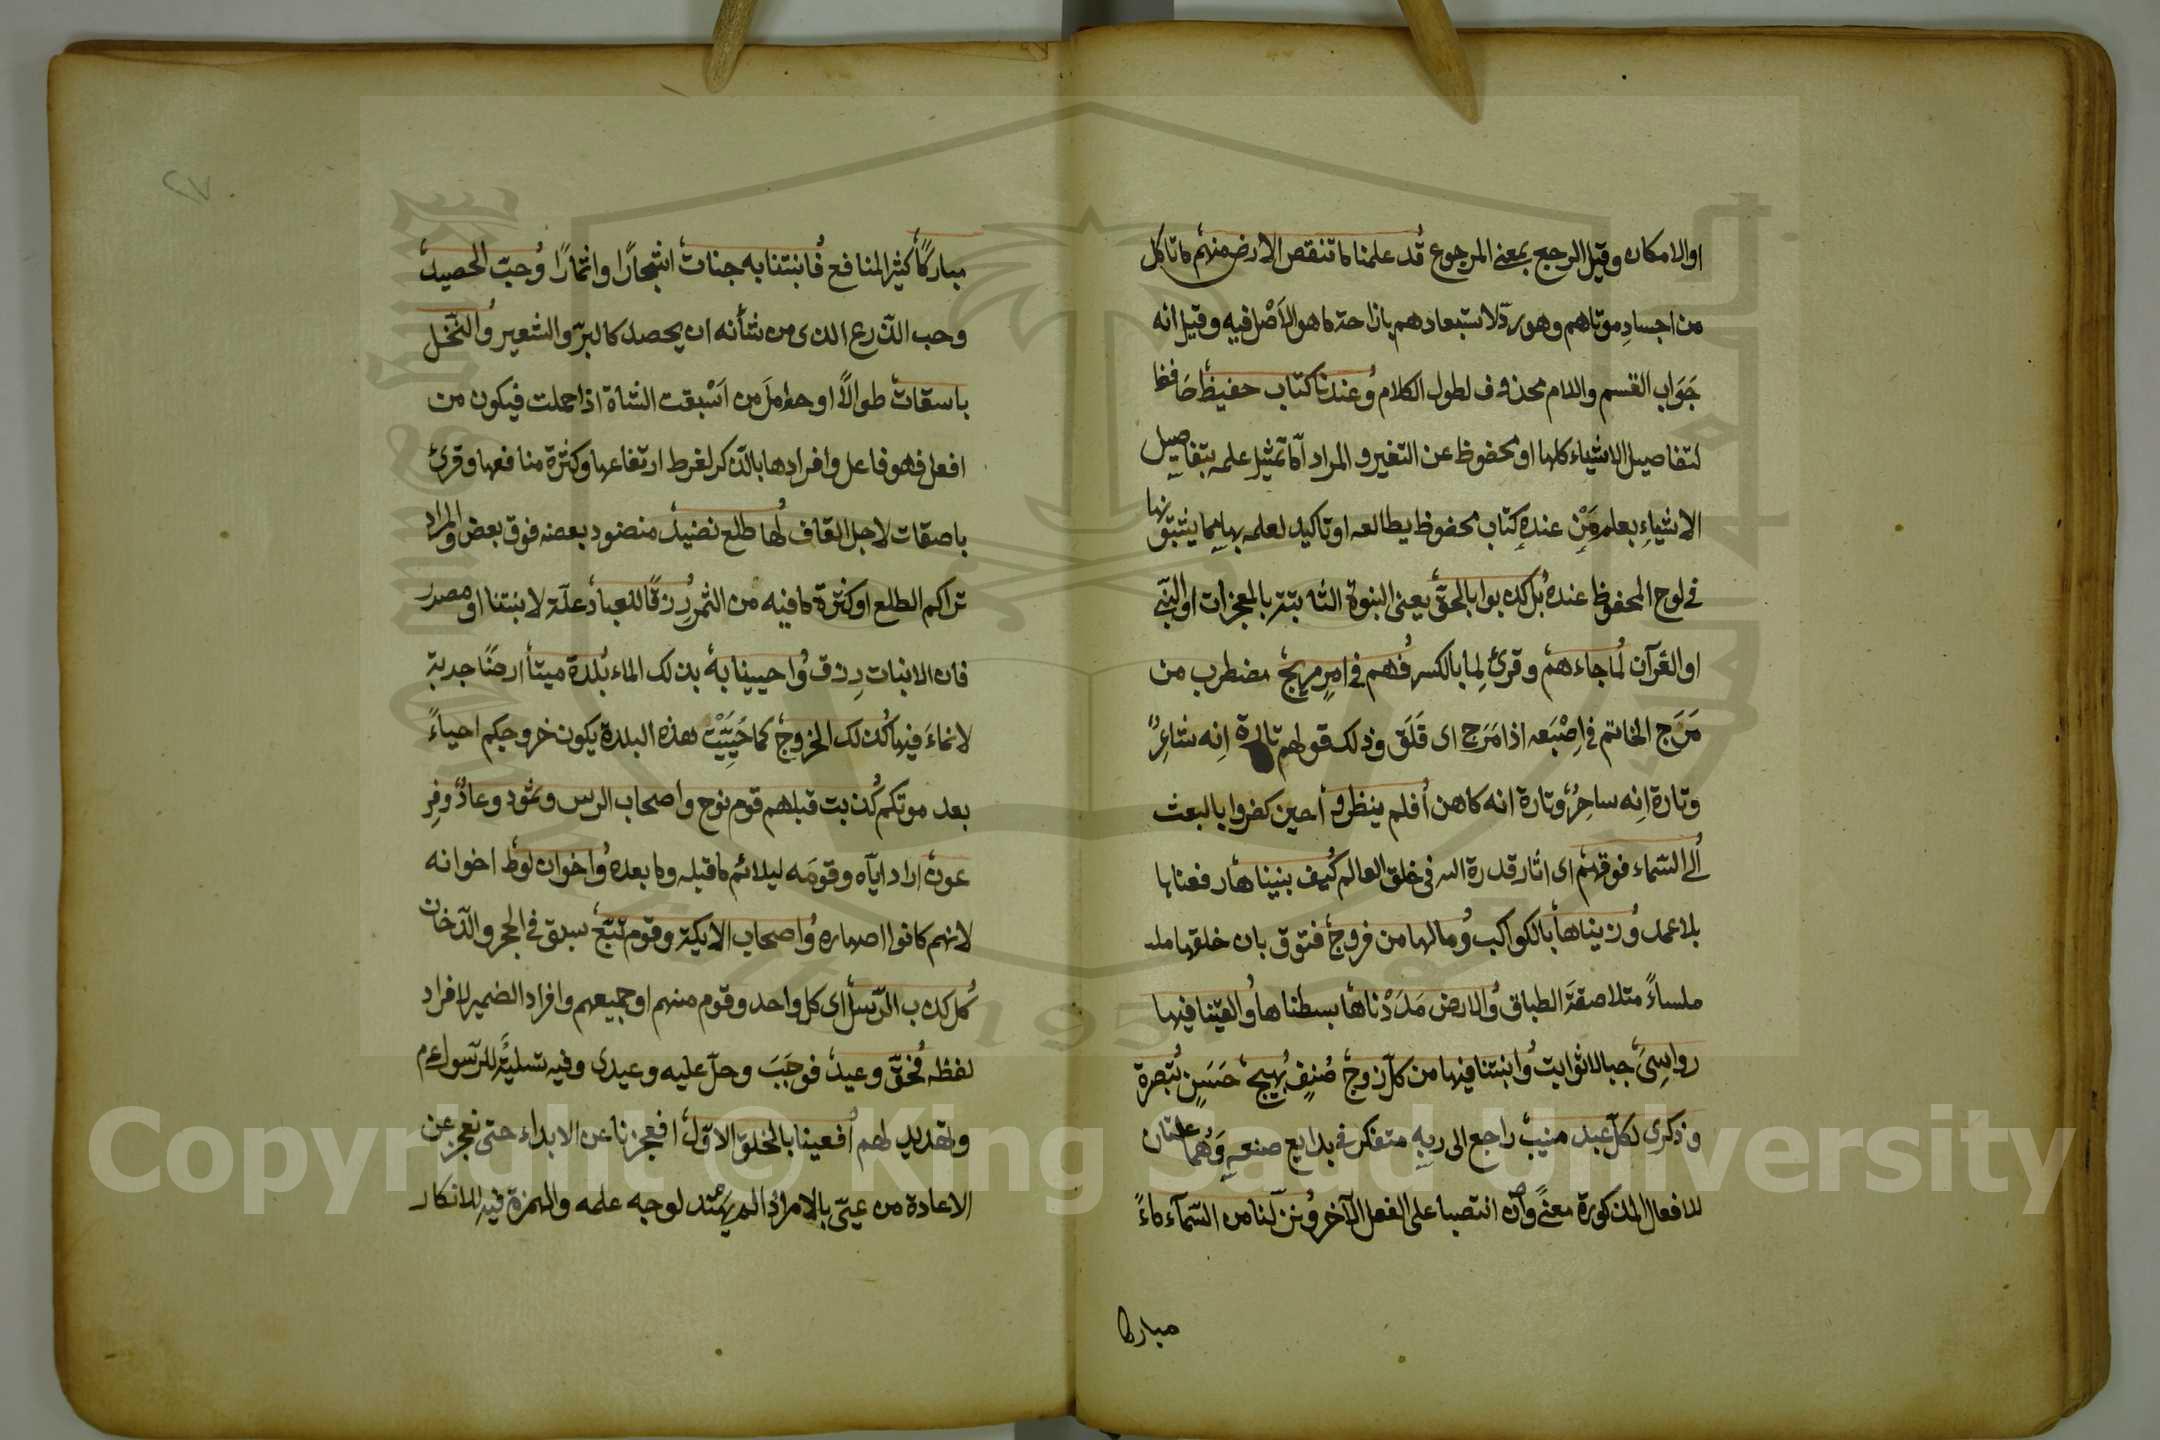 او الامكان وقيل الرجع بمعنى المرجوع قد علمنا ما تنقص الارض منهم ما تاكل
من اجسادِ موتاهم وهو ردّ لاستبعادهم بازاحة ما هو الاَصْل فيه وقيل انه
جَوَاب القسم واللام محذوف لطول الكلام وعندنا كتاب حفيظ حَافظ
لتفاصيل الاشياء كلها او محفوظ عن التغير و المراد امّا تمثيل علمه بتفاصيل
الاشياءِ بعلم مَنْ عنده كتاب محفوظ يطالعه او تاكيد لعلمه بها بما ثبوتها
في لوح المحفوظ عنده بل كذبوا بالحقّ يعنى النبوة الثابتة بالمعجزات او النّبى
او القرآن لما جاءهم وقرئ لِما بالكسر فهم في امرٍ مريج مضطرب من
مَرَج الخاتم في اِصْبَعه اذا مَرَج اى قَلَق وذلك قولهم تارة اِنه شاعِرٌ
وتارة اِنه ساحِرٌ وتارة انه كاهن أفلم ينظروا أحين كفروا بالبعث
الى السّماء فوقهم اى اثار قدرة الله فى خلق العالم كيف بنيناها رفعناها
بلا عمد وزيناها بالكواكب وما لها من فروج فتوق بان خلقها ملـ
ملساءً متلاصقة الطباق والارض مَدَدْناها بسطناها والقينا فيها
رواسِىَ جبالا ثوابت وانبتنا فيها من كلّ زوج صُنفٍ بهيج حَسَنٍ تبصرة
وذكرى لكلّ عبد منيب راجع الى ربهِ متفكر فى بدايع صنعهِ وَهُما علتان
للافعال المذكورة معنىً وان انتصبا على الفعل الآخر ونزّلنا من السّمآء ماءً
مباركا
مباركًا كثير المنافع فانبتنا به جنات اشجارًا واثمارًا وحبّ الحصيد
وحب الذّرع الذى من شأنه ان يحصد كالبرّ والشعير والنّخل
باسقات طوالاً او حوامل من اَسْبقت الشاة اذا حملت فيكون من
افعل فهو فاعل وافرادها بالذّكر لفرط ارتفاعها وكثرة منافعها وقرئ
باصقات لاجل القاف لها طلع نضيد منضود بعضه فوق بعض والمراد
تراكم الطلع او كثرة ما فيه من الثمر رزقًا للعباد علّة لانبتنا او مصدر
فان الانبات رِزق واحيينا به بذلك الماء بلدة ميتا ارضًا جدبة
لا نماءَ فيها كذلك الخروج كما حُيِّيَتْ هذه البلدة يكون خروجكم احياءً
بعد موتكم كذبت قبلهم قوم نوح واصحاب الرس وثمود وعادٌ وفِر
عون اراد ايّاه وقومَه ليلائم ما قبله وما بعده واخوان لوط اخوانه
لانهم كانوا اصهاره واصحاب الايكة وقوم تبّع سبق فى الحجر والدّخان
كل كذب الرّسل اى كل واحد وقوم منهم او جميعهم وافراد الضمير لافراد
لفظه فحقّ وعيد فوجَبَ وحلّ عليه وعيدى وفيه تسليةً للرّسول ءم
وتهديد لهم افعيينا بالخلق الاوّل افعجزنا عن الابداء حتى نعجز عن
الاعادة من عيّى بالامر اذا لم يهتد لوجه علمه والهمزة فيه للانكار
٢٧
Copyright © King Saud University
1957